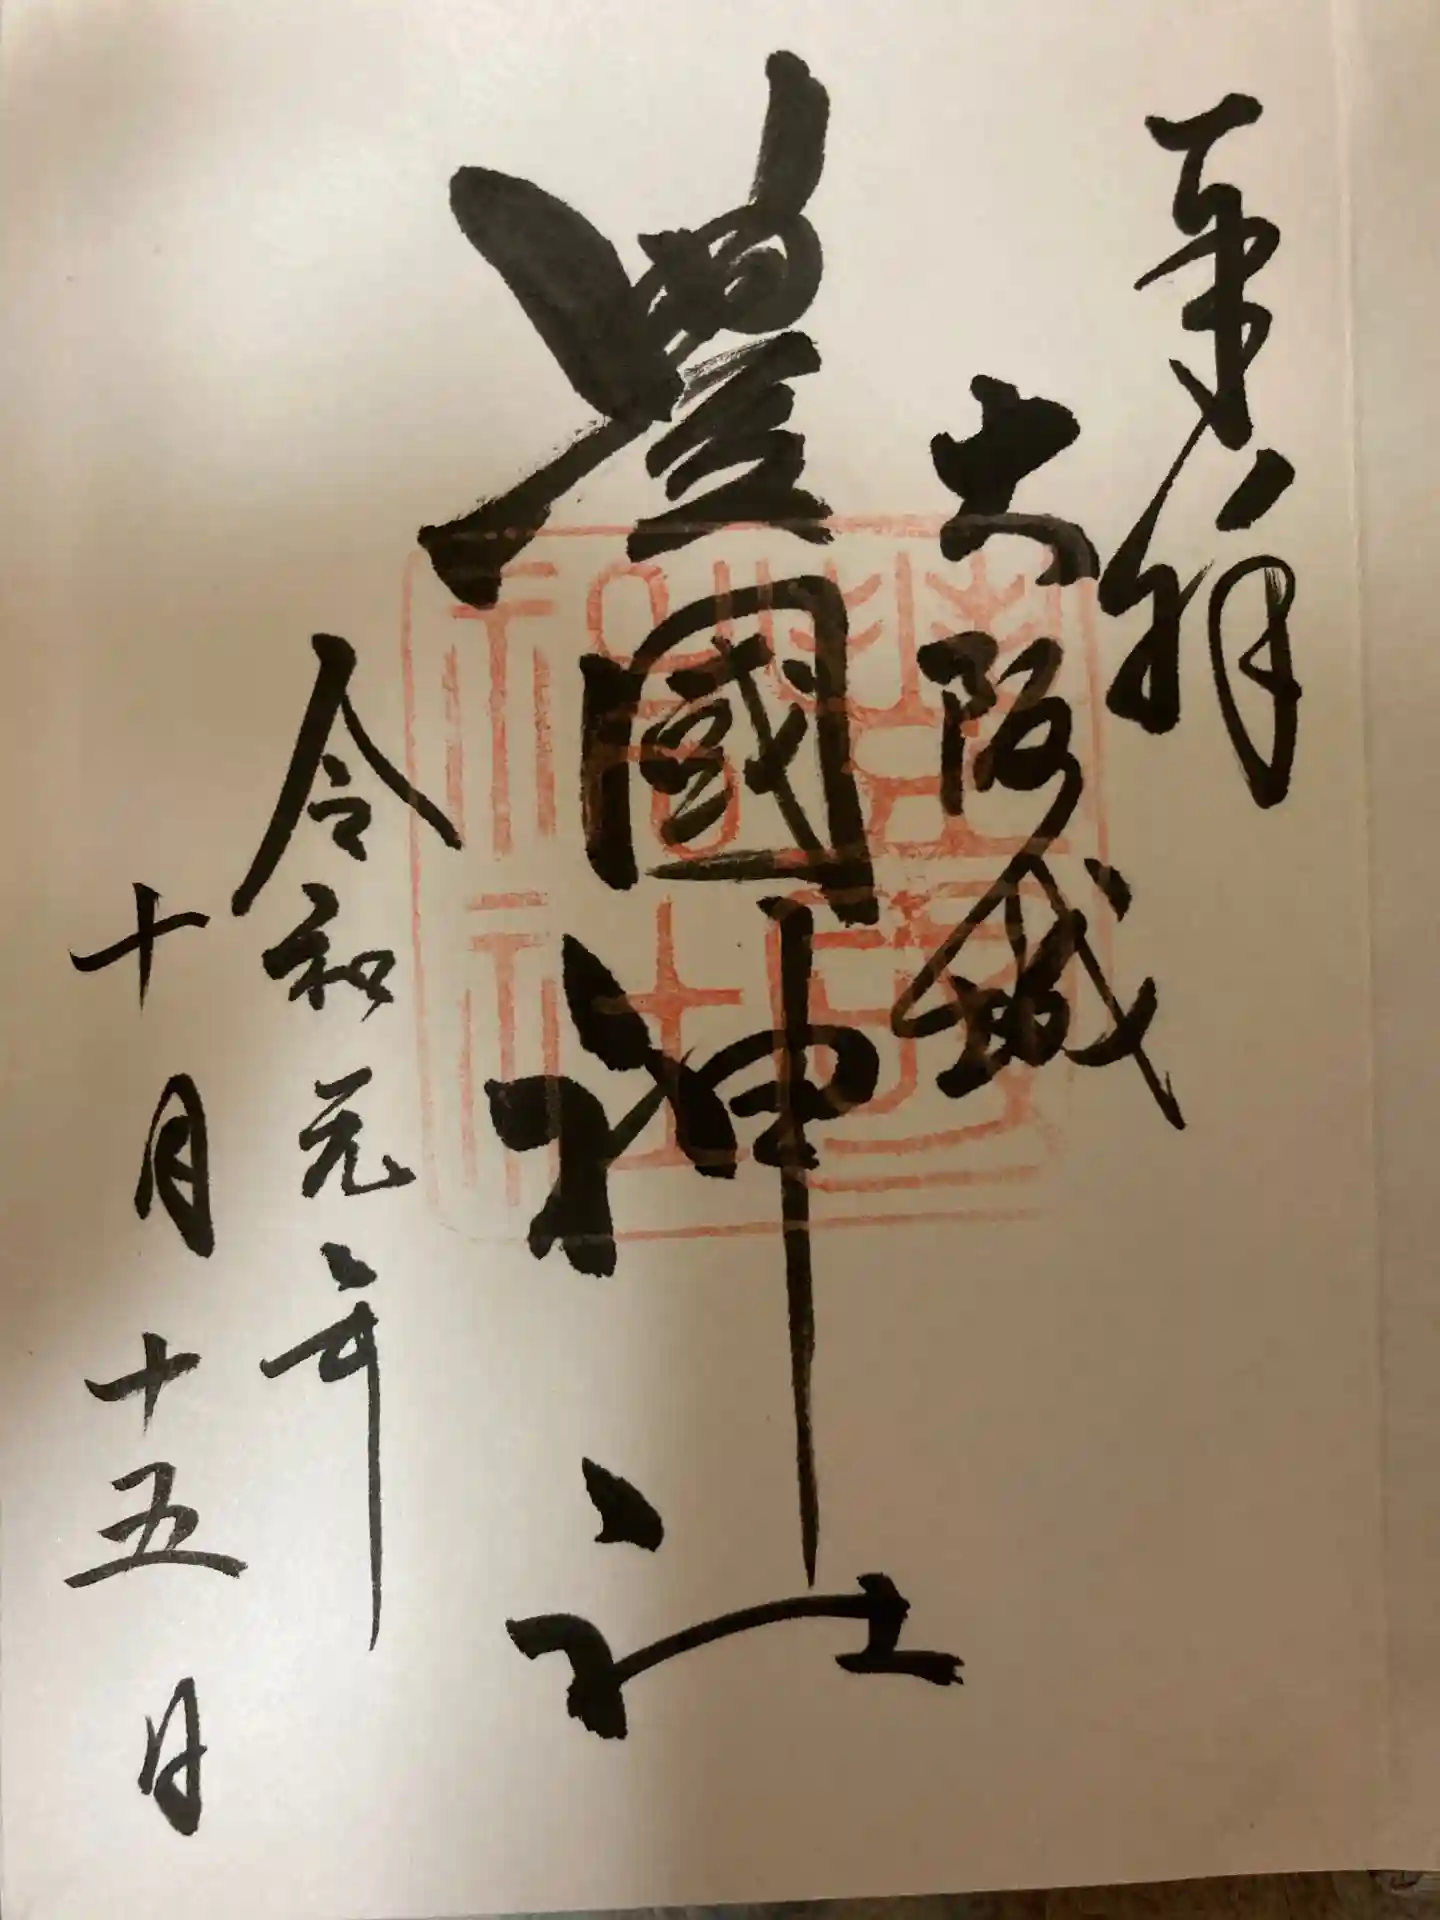 奉拝
大阪城
豊國神社
令和元年
十月十五日